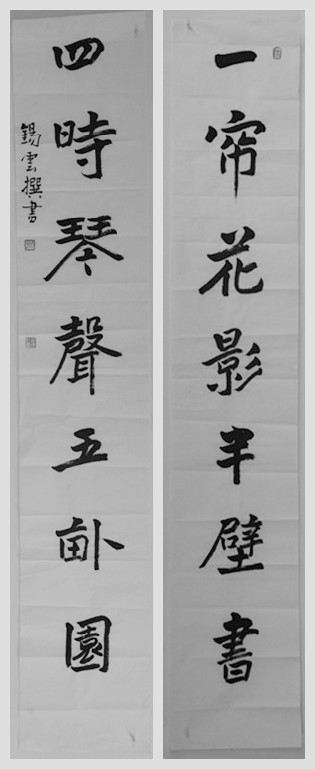 一帘花影半壁書
四時琴聲五畝園
錫雲撰書